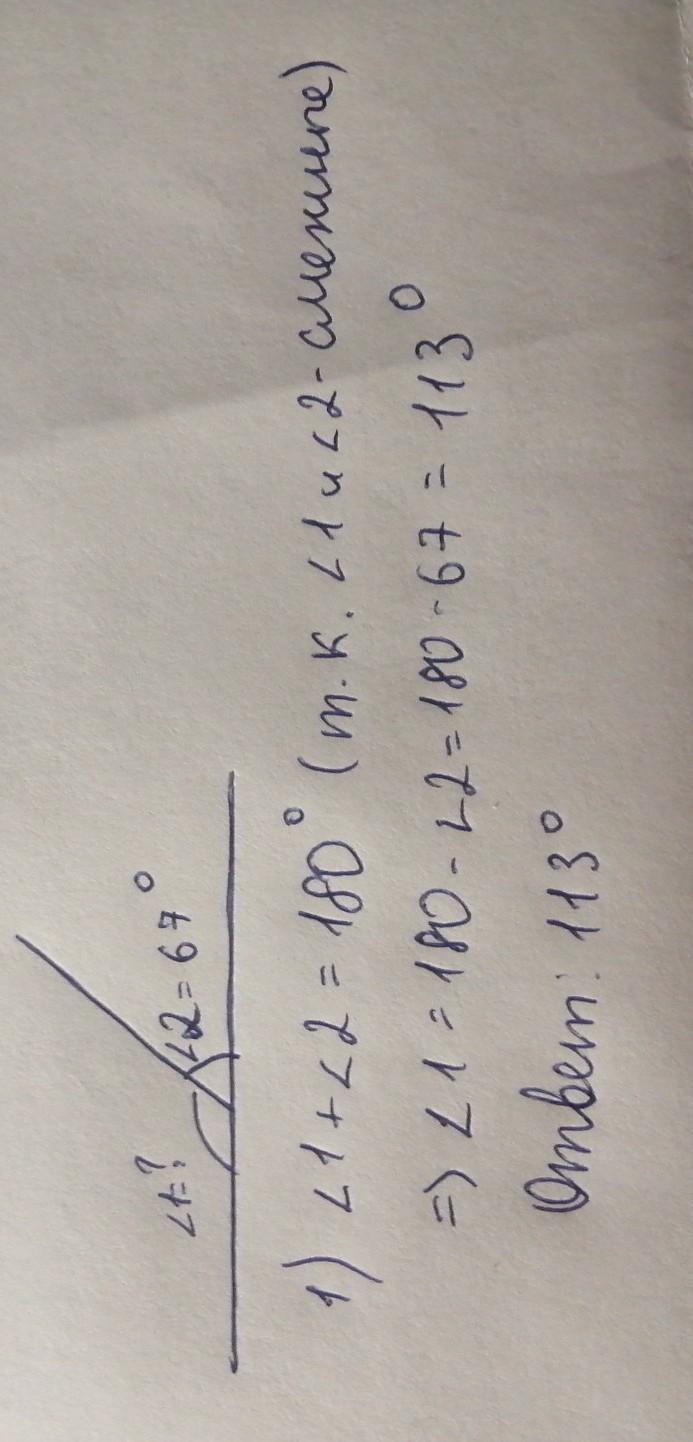 ∠1=?
∠2=67°
1) ∠1+∠2=180° (т.к. ∠1 и ∠2-смежные)
=> ∠1=180-∠2=180-67=113°
Ответ: 113°